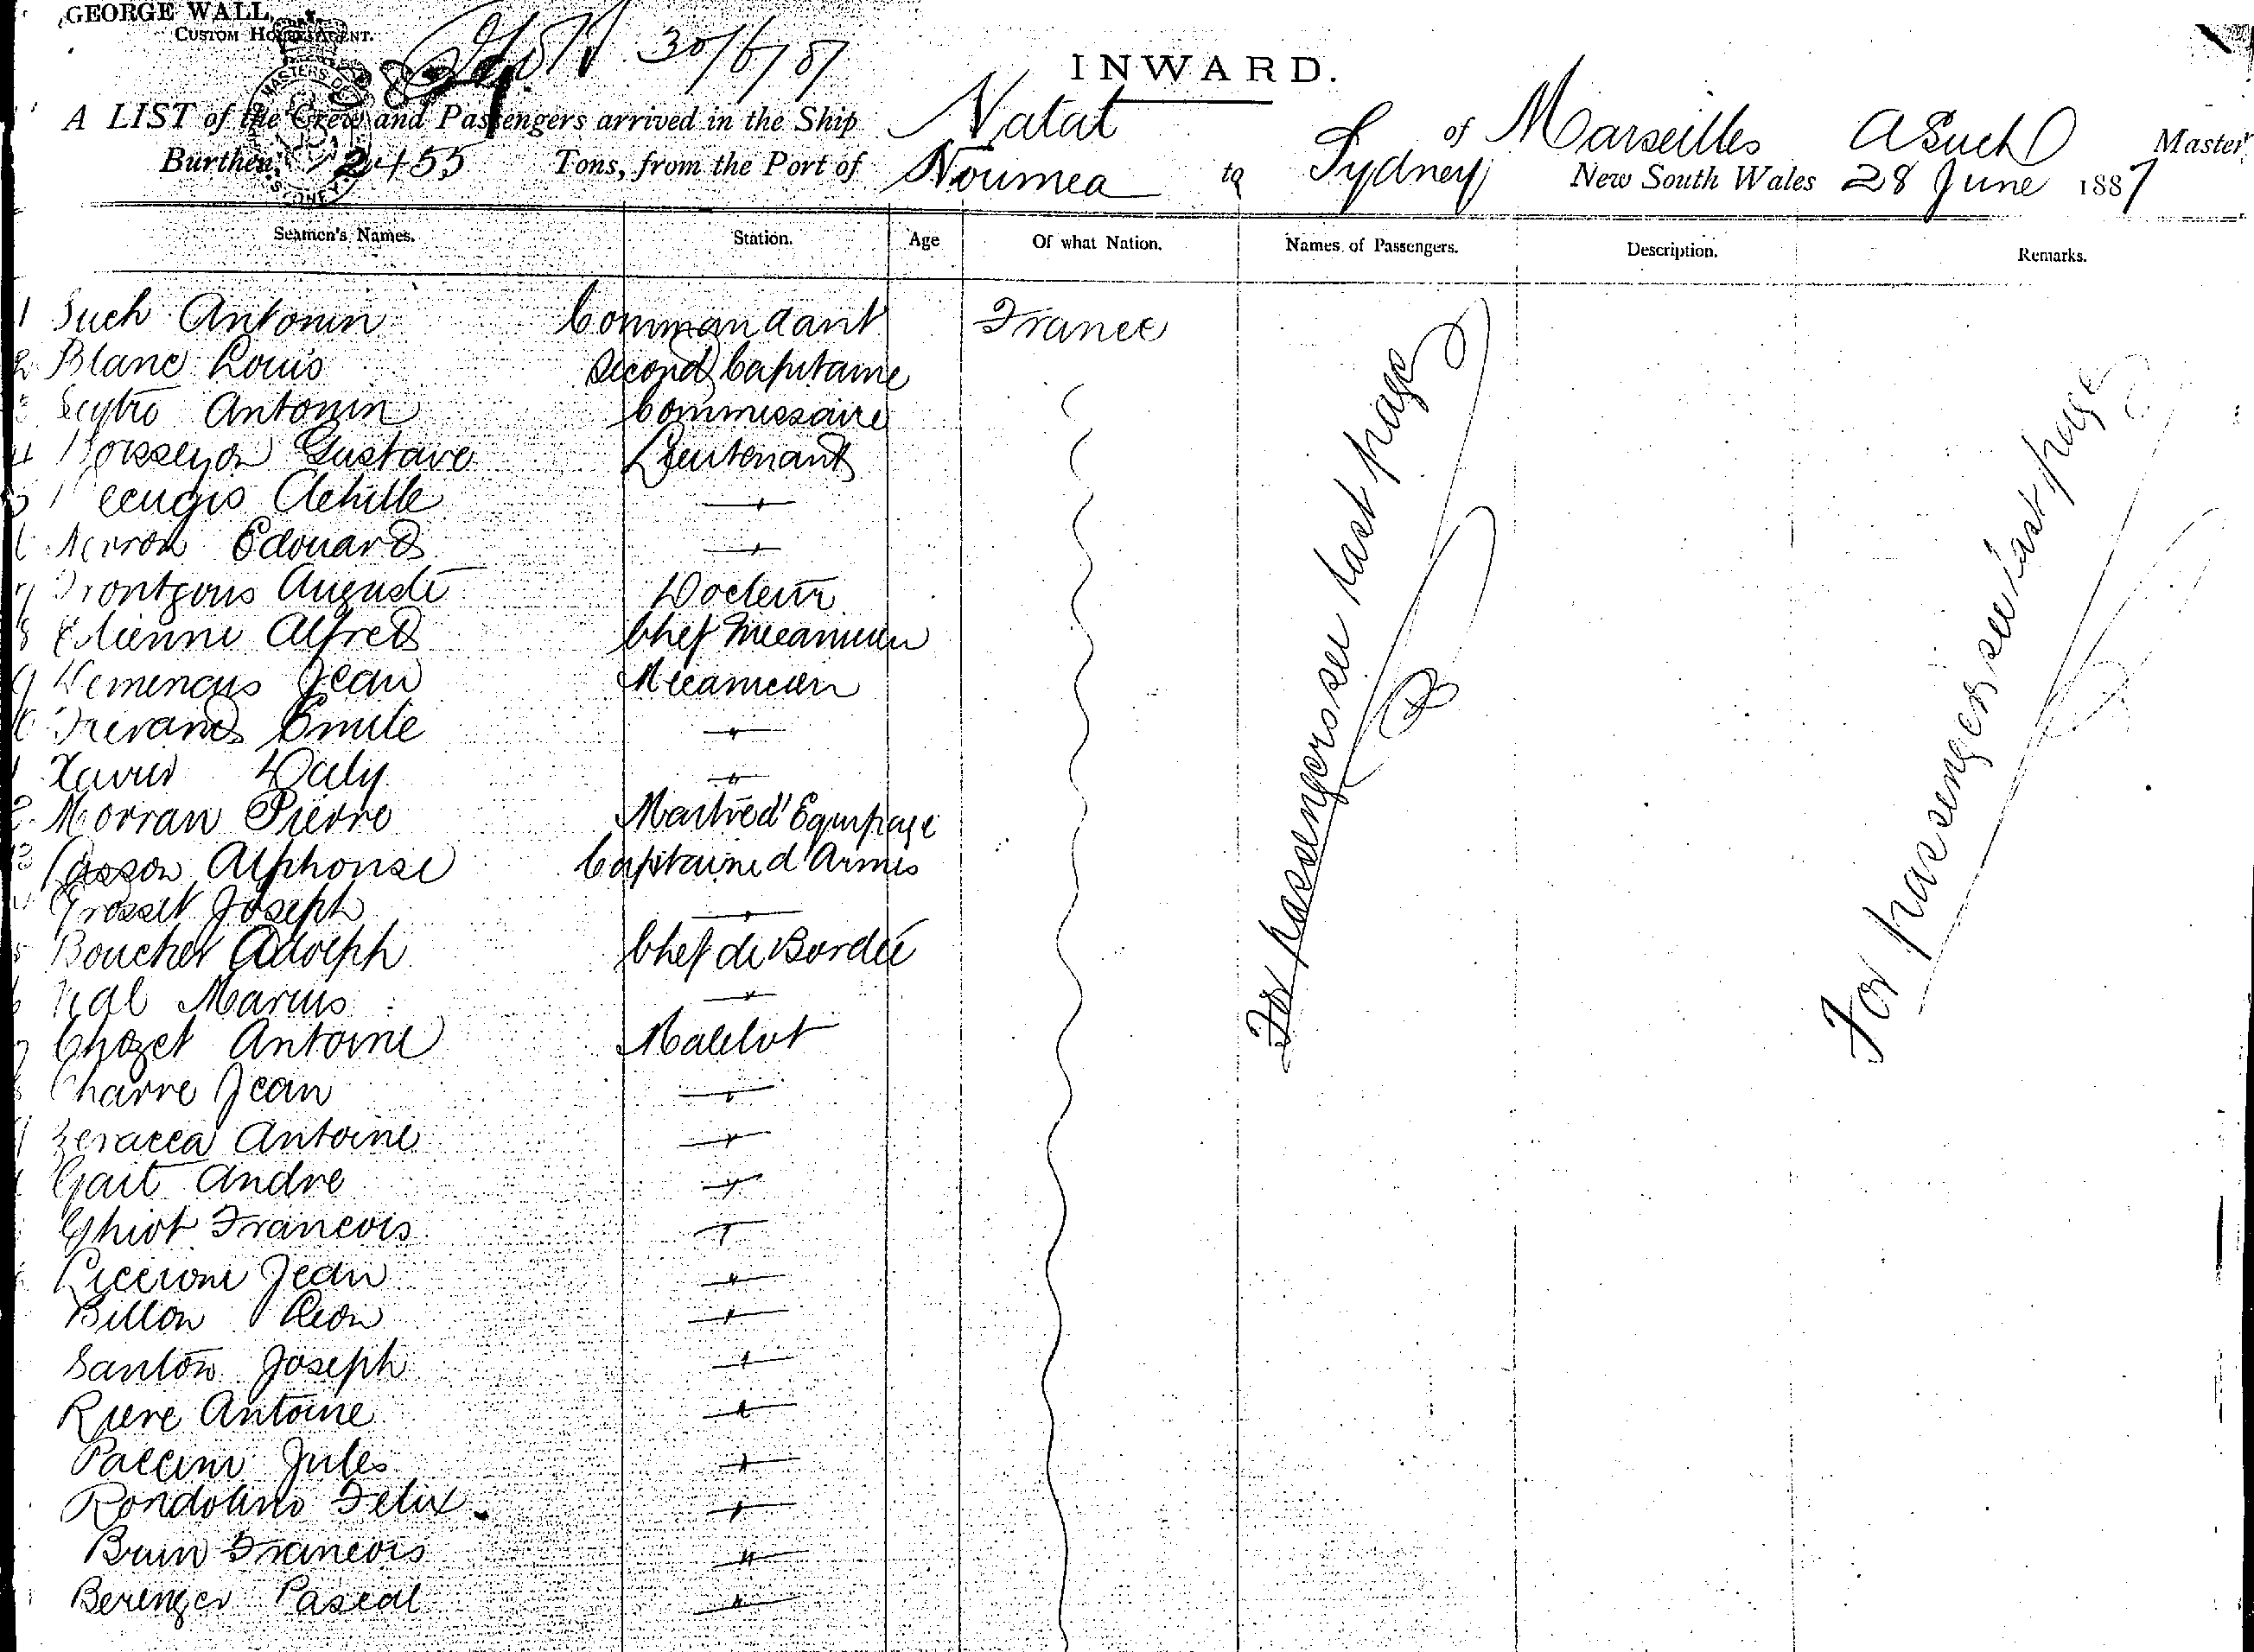 GEORGE WALL,
CUSTOM HOUSE AGENT.
30/6/87
INWARD.
A LIST of the Crew and Passengers arrived in the Ship Natal of Marseilles A Such Master
Burthen, 2455 Tons, from the Port of Noumea to Sydney New South Wales 28 June 1887
Seamen's Names. Station. Age Of what Nation. Names of Passengers. Description. Remarks.
1 Such Antonin Commandant France
2 Blanc Louis Second Capitaine
Antonin Commissaire
4 Gustave Lieutenant
Achille
Edouard
7 Auguste Docteur
8 Etienne Alfred Chef Mecanicien
9 Jean Mecanicien
Emile
Xavier Daly
Morran Pierre Maitre d'Equipage
13 Casson Alphonse Capitaine d'Armes
Grosset Joseph
Boucher Adolph Chef de Bordée
Marius
Chozet Antoine Matelot
Charre Jean
Antoine
Gait Andre
Ghiot Francois
Jean
Billon Leon
Santon Joseph
Riere Antoine
Paccini Jules
Rondolino Felix
Brun Francois
Berenger Pascal
For passengers see last page
For passengers see last page